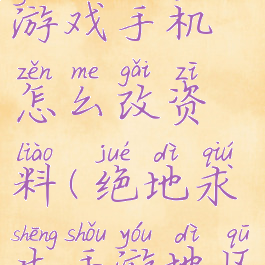 游戏手机
zěn me gǎi zī
怎么改资
liào jué dì qiú
料(绝地求
shēng shǒu yóu dì qū
生手游地区